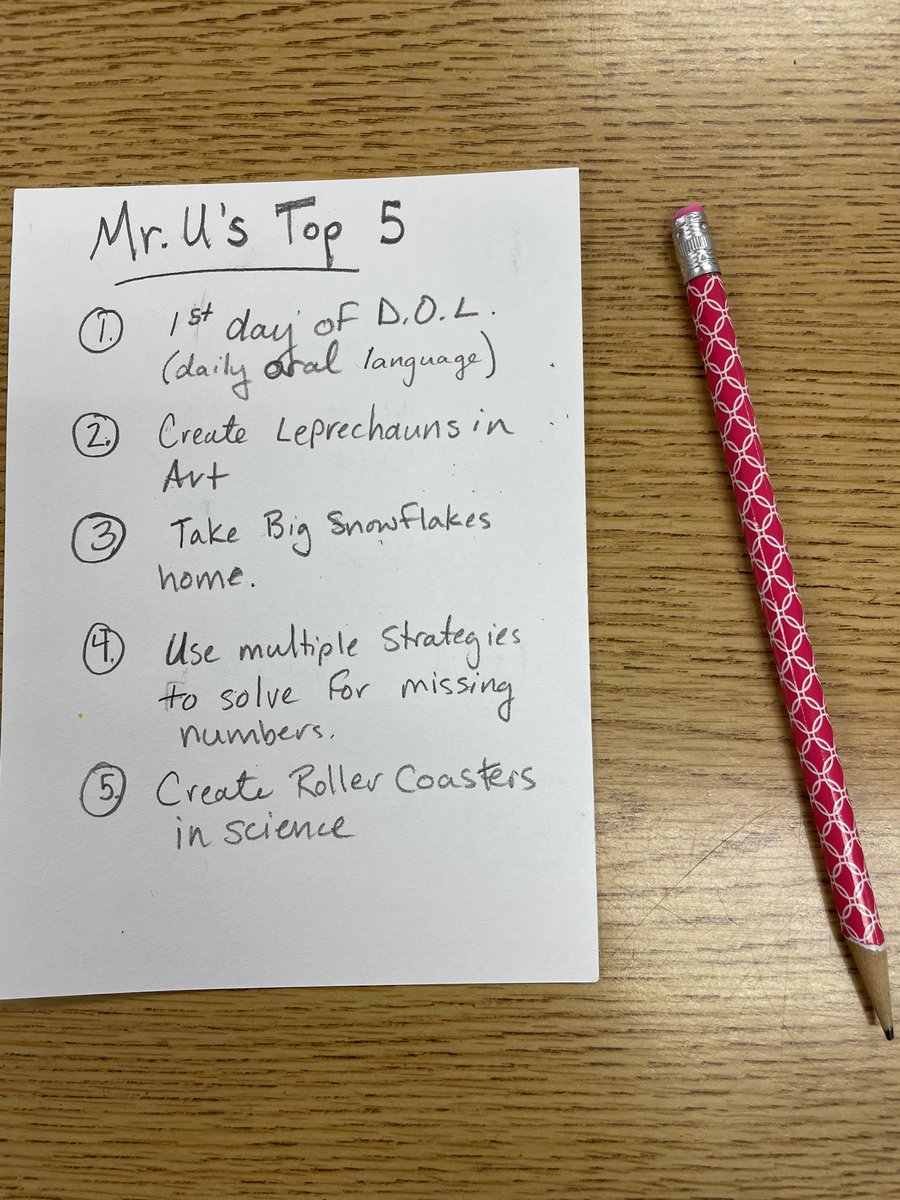 Mr. U's Top 5
1. 1st day of D.O.L.
(daily oral language)
2. Create Leprechauns in
Art
3. Take Big Snowflakes
home.
4. Use multiple Strategies
to solve for missing
numbers.
5. Create Roller Coasters
in science